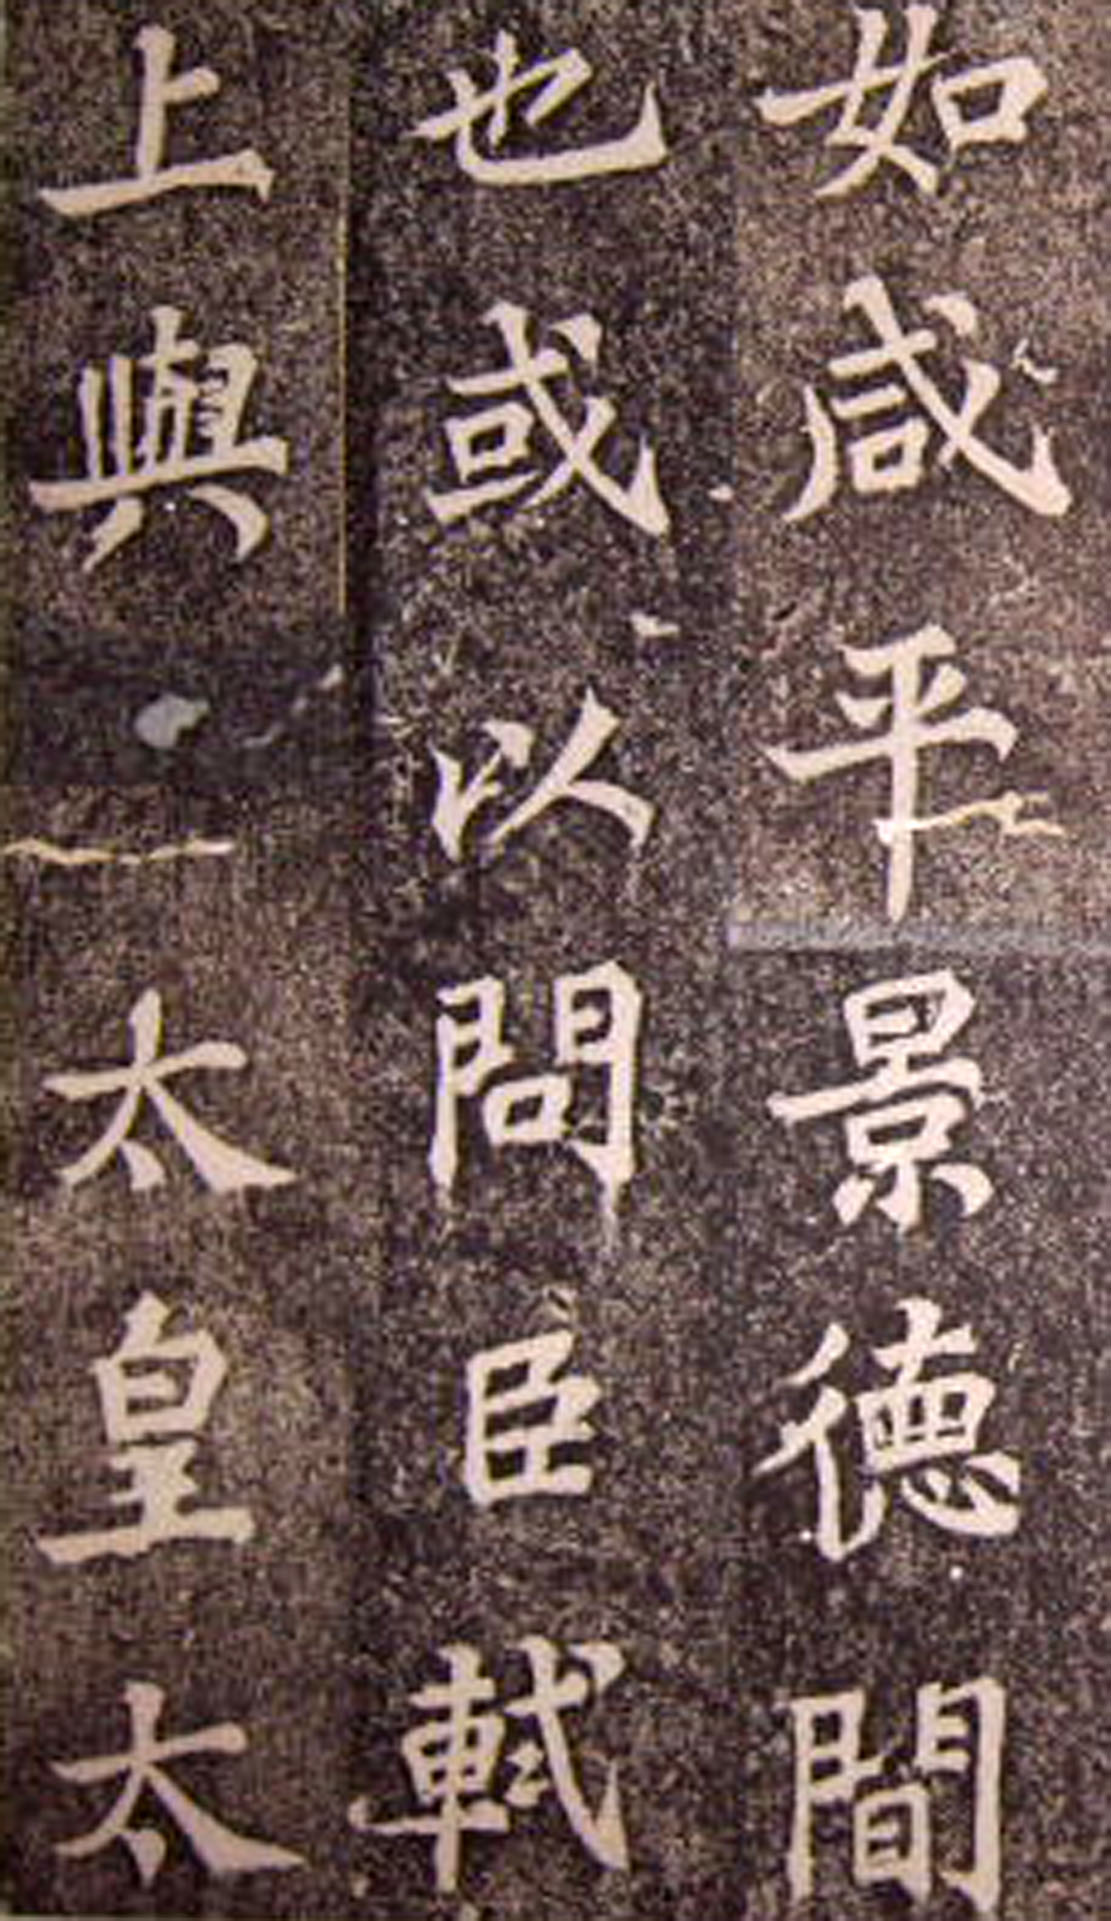 如咸平景德間
也或以問臣軾
上與太皇太